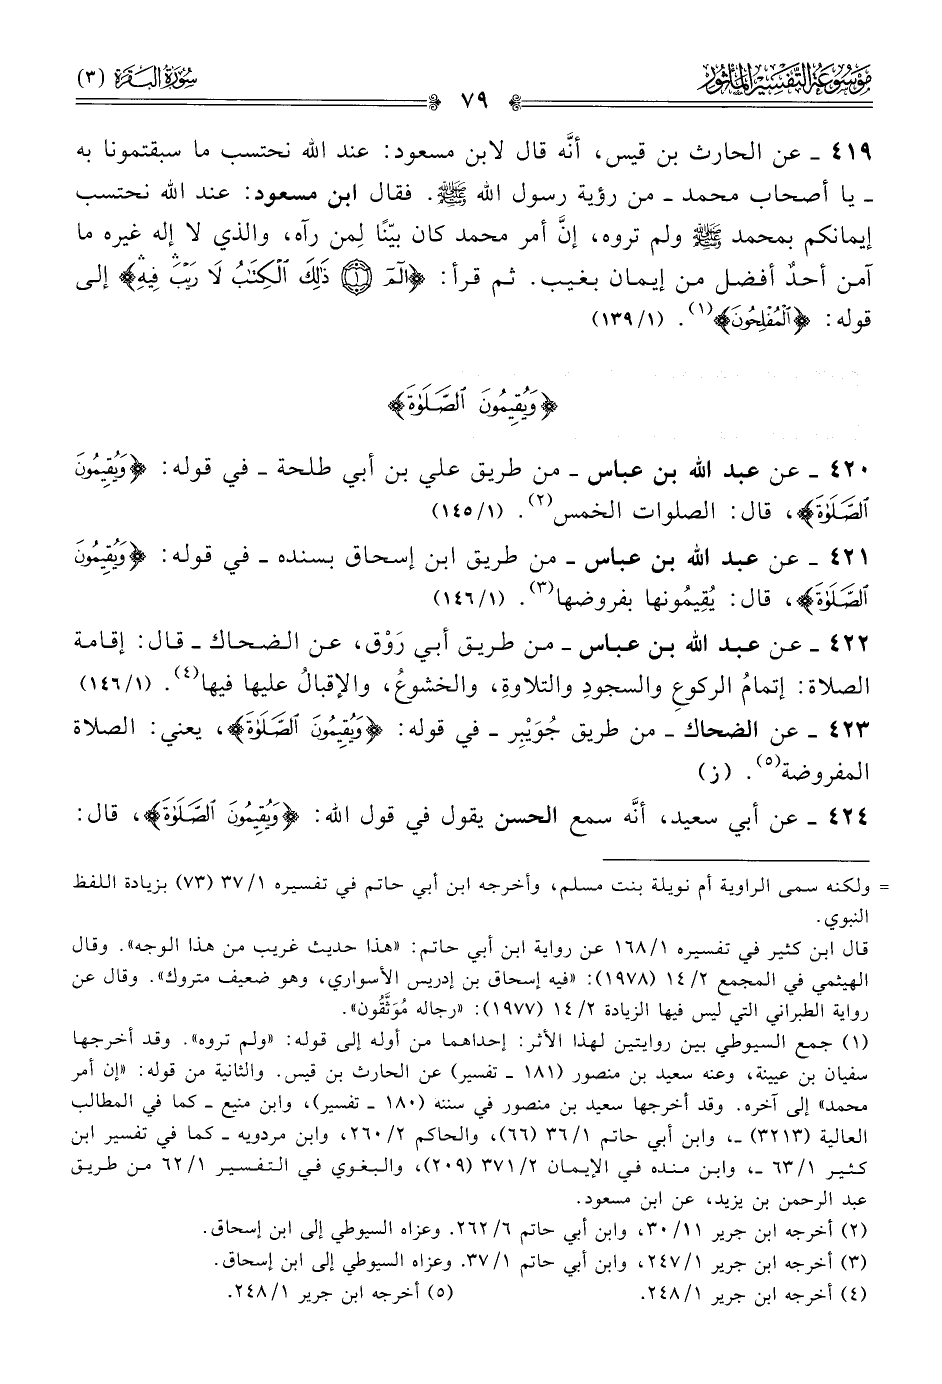 مَوْسُوعَةُ التَّفْسِيرِ المَأْثُورِ
٧٩
سُورَةُ البَقَرَة (٣)
٤١٩ ـ عن الحارث بن قيس، أنَّه قال لابن مسعود: عند الله نحتسب ما سبقتمونا به
ـ يا أصحاب محمد ـ من رؤية رسول الله ﷺ. فقال ابن مسعود: عند الله نحتسب
إيمانكم بمحمد ﷺ ولم تروه، إنَّ أمر محمد كان بيّنًا لِمن رآه، والذي لا إله غيره ما
آمن أحدٌ أفضل من إيمان بغيب. ثم قرأ: ﴿الٓمٓ ۝١ ذَٰلِكَ ٱلْكِتَٰبُ لَا رَيْبَۛ فِيهِۛ﴾ إلى
قوله: ﴿ٱلْمُفْلِحُونَ﴾(١). (١/ ١٣٩)
﴿وَيُقِيمُونَ ٱلصَّلَوٰةَ﴾
٤٢٠ ـ عن عبد الله بن عباس ـ من طريق علي بن أبي طلحة ـ في قوله: ﴿وَيُقِيمُونَ
ٱلصَّلَوٰةَ﴾، قال: الصلوات الخمس(٢). (١/ ١٤٥)
٤٢١ ـ عن عبد الله بن عباس ـ من طريق ابن إسحاق بسنده ـ في قوله: ﴿وَيُقِيمُونَ
ٱلصَّلَوٰةَ﴾، قال: يُقِيمُونها بفروضها(٣). (١/ ١٤٦)
٤٢٢ ـ عن عبد الله بن عباس ـ من طريق أبي رَوْق، عن الضحاك ـ قال: إقامة
الصلاة: إتمامُ الركوعِ والسجودِ والتلاوةِ، والخشوعُ، والإقبالُ عليها فيها(٤). (١/ ١٤٦)
٤٢٣ ـ عن الضحاك ـ من طريق جُوَيْبِر ـ في قوله: ﴿وَيُقِيمُونَ ٱلصَّلَوٰةَ﴾، يعني: الصلاة
المفروضة(٥). (ز)
٤٢٤ ـ عن أبي سعيد، أنَّه سمع الحسن يقول في قول الله: ﴿وَيُقِيمُونَ ٱلصَّلَوٰةَ﴾، قال:
= ولكنه سمى الراوية أم نويلة بنت مسلم، وأخرجه ابن أبي حاتم في تفسيره ١/ ٣٧ (٧٣) بزيادة اللفظ
النبوي.
قال ابن كثير في تفسيره ١/ ١٦٨ عن رواية ابن أبي حاتم: «هذا حديث غريب من هذا الوجه». وقال
الهيثمي في المجمع ٢/ ١٤ (١٩٧٨): «فيه إسحاق بن إدريس الأسواري، وهو ضعيف متروك». وقال عن
رواية الطبراني التي ليس فيها الزيادة ٢/ ١٤ (١٩٧٧): «رجاله مُوَثَّقُون».
(١) جمع السيوطي بين روايتين لهذا الأثر: إحداهما من أوله إلى قوله: «ولم تروه». وقد أخرجها
سفيان بن عيينة، وعنه سعيد بن منصور (١٨١ ـ تفسير) عن الحارث بن قيس. والثانية من قوله: «إن أمر
محمد» إلى آخره. وقد أخرجها سعيد بن منصور في سننه (١٨٠ ـ تفسير)، وابن منيع ـ كما في المطالب
العالية (٣٢١٣) ـ، وابن أبي حاتم ١/ ٣٦ (٦٦)، والحاكم ٢/ ٢٦٠، وابن مردويه ـ كما في تفسير ابن
كثير ١/ ٦٣ ـ، وابن منده في الإيمان ٢/ ٣٧١ (٢٠٩)، والبغوي في التفسير ١/ ٦٢ من طريق
عبد الرحمن بن يزيد، عن ابن مسعود.
(٢) أخرجه ابن جرير ١١/ ٣٠، وابن أبي حاتم ٦/ ٢٦٢. وعزاه السيوطي إلى ابن إسحاق.
(٣) أخرجه ابن جرير ١/ ٢٤٧، وابن أبي حاتم ١/ ٣٧. وعزاه السيوطي إلى ابن إسحاق.
(٤) أخرجه ابن جرير ١/ ٢٤٨. (٥) أخرجه ابن جرير ١/ ٢٤٨.